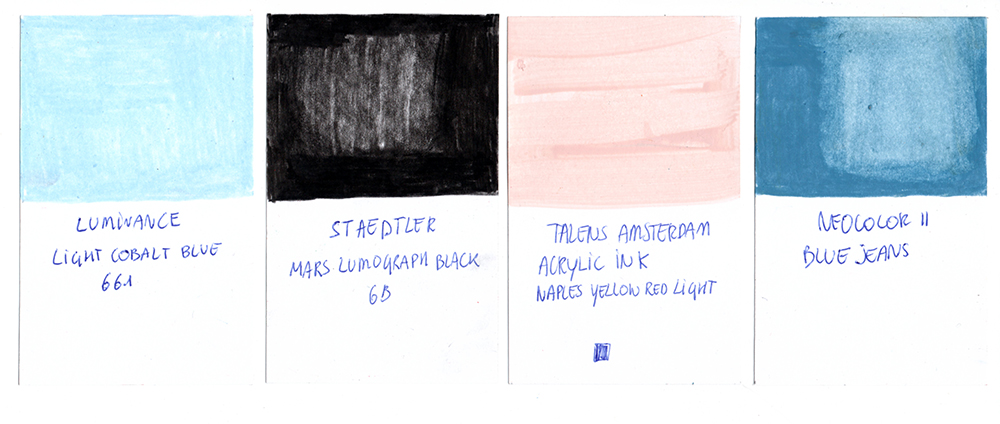 LUMINANCE
LIGHT COBALT BLUE
661
STAEDTLER
MARS LUMOGRAPH BLACK
6B
TALENS AMSTERDAM
ACRYLIC INK
NAPLES YELLOW RED LIGHT
NEOCOLOR II
BLUE JEANS